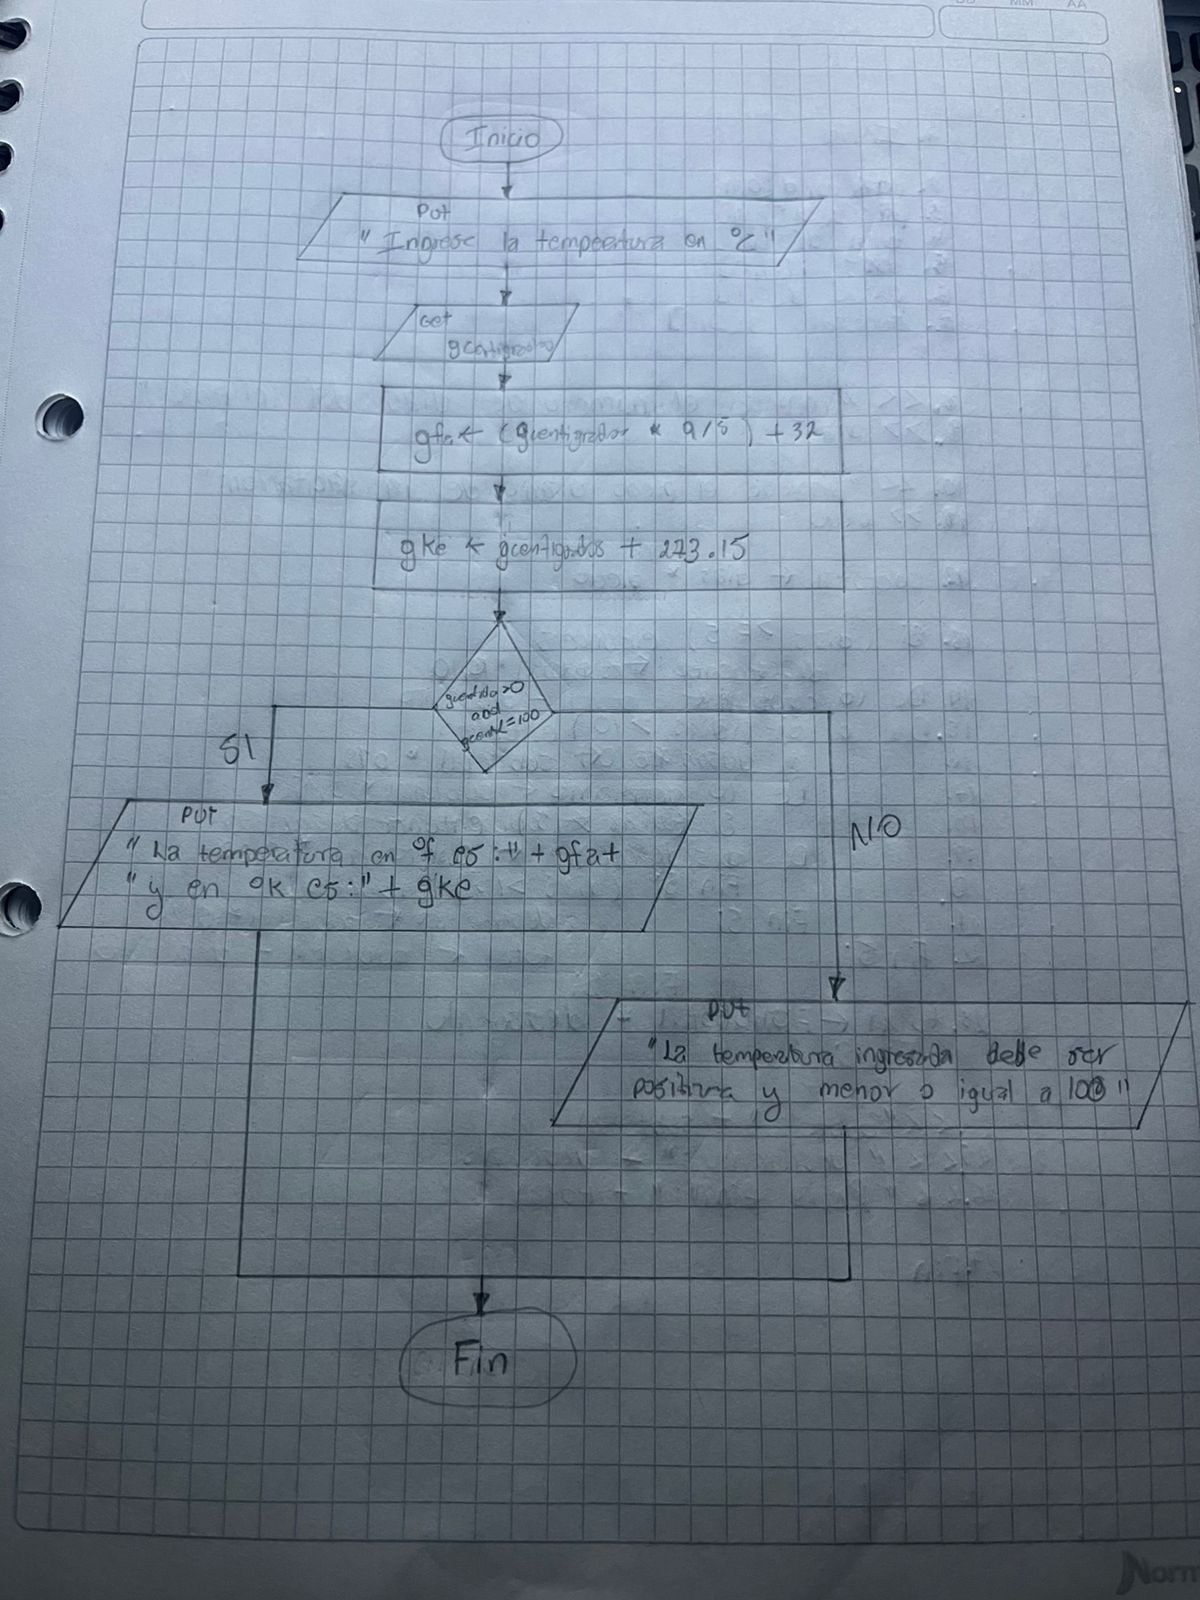 MM AA
Inicio
Put
" Ingrese la tempeertura en °C"
Get
gcentigrados
gfa ← (gcentigrados * 9/5) + 32
gke ← gcentigrados + 273.15
>0
and
<=100
SI
NO
PUT
" La temperatura en °f es:" + gfa+
" y en °k es:" + gke
PUT
"La temperatura ingresada debe ser
positiva y menor o igual a 100"
Fin
Norm